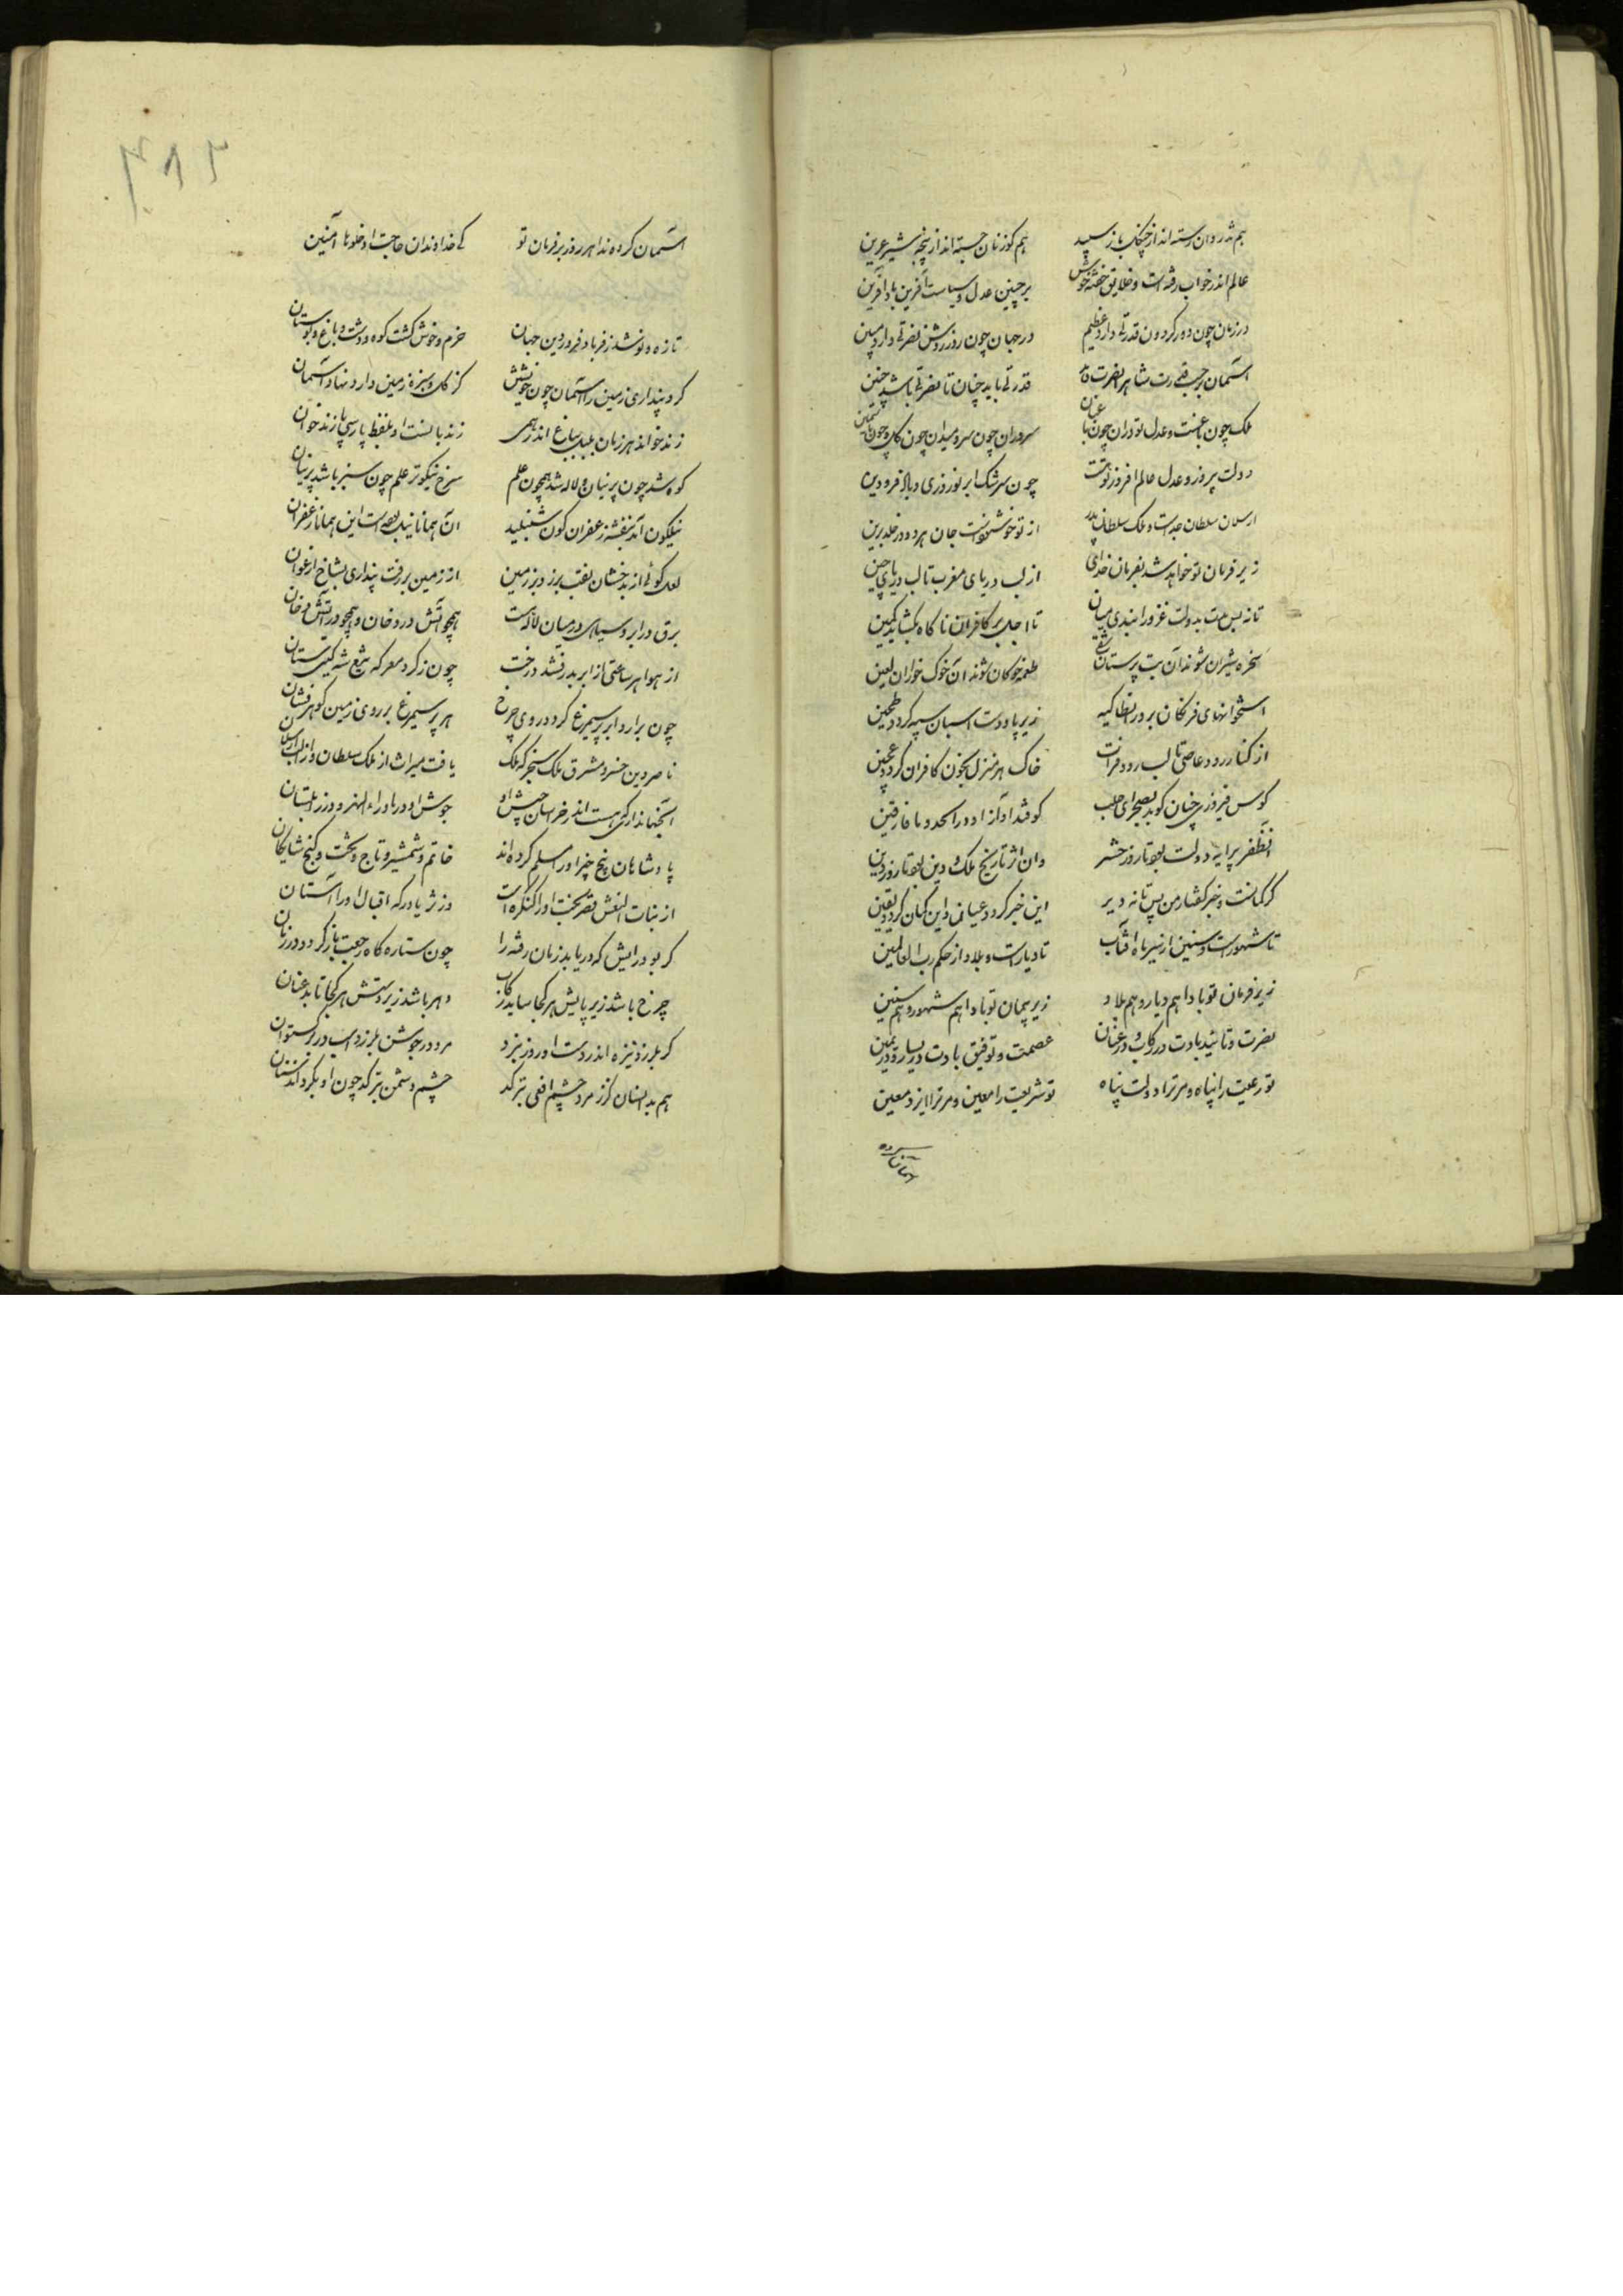 هم تذروان رسته اند از چنگ باز سپید هم کوزنان جسته اند از پنجه شیر عرین
عالم اندر خواب رفته است و خلایق خفته خوش بر چنین عدل و سیاست آفرین باد آفرین
در زمان چون دور کردون قدرتی دارد عظیم در جهان چون روز روشن نصرتی دارد مبین
آسمان بر حسب قدرت شاهرا نصرت قدرتی باید چنان تا نصرتی باشد چنین
ملک چون باغست و عدل تو دران چون باغبان سروران چون سرو میدان چون کل و چون یاسمین
دولت پیروز و عدل عالم افروز تو هست چون سرشک ابر نوروزی و باد فرودین
ارسلان سلطان جدست و ملک سلطان پدر از تو خوشنودست جان هر دو در خلد برین
زیر فرمان تو خواهد شد بفرمان خدای از لب دریای مغرب تا لب دریای چین
تا نه بس مدت بدولت غزو را بندی میان تا اجل بر کافران ناکاه بکشاید کمین
سخره شیران شوند آن بت پرستان طعمه خوکان شوند آن خوک خواران لعین
استخوانهای فرنکان بر در انطاکیه زیر پا و دست اسبان سپه کردد طحین
از کنار رود عاصی تا لب رود فرات خاک هر منزل بخون کافران کردد عجین
کوس فیروزی چنان کوبد بصحرای حلب کوفتد آواز او در آمد و میافارقین
آن ظفر پیرایه دولت بود تا روز حشر وان اثر تاریخ ملک و دین بود تا روز دین
کر کمانست و خبر کفتار من پس تا نه دیر این خبر کردد عیانی و این کمان کردد یقین
تا شهورست و سنین از سیر ماه و آفتاب تا دیارست و بلاد از حکم رب العالمین
زیر فرمان تو بادا هم دیار و هم بلاد زیر پیمان تو بادا هم شهور و هم سنین
نصرت و تائید بادت در رکاب و در عنان عصمت و توفیق بادت در یسار و در یمین
تو رعیت را پناه و مر ترا دولت پناه تو شریعت را معین و مر ترا ایزد معین
آسمان کرده
آسمان کرده ندا هر روز بر فرمان تو کای خداوندان حاجت ادخلوها آمنین
تازه و نو شد ز فر باد فروردین جهان خرم و خوش کشت کوه و دشت و باغ و بوستان
کرد پنداری زمین را آسمان چون خویشتن کز کل و سبزه زمین دارد نهاد آسمان
زند خواند هر زمان بلبل بباغ اندر همی زند باستست او بلفظ پارسی یا زند خوان
کوه شد چون پرنیان و لاله شد همچون علم سرخ نیکوتر علم چون سبز باشد پرنیان
نیلکون آمد بنفشه زعفران کون شنبلید آن همانا نیل بوده است این همانا زعفران
لعل کوئی از بدخشان نقب برزد بر زمین از زمین بر رفت پنداری بشاخ ارغوان
برق در ابر و سیاهی در میان لاله است همچو آتش در دخان و همچو در آتش دخان
از هوا هر ساعتی از ابر بدرفشد درخت چون ز کرد معرکه تیغ شه کیتی ستان
چون برآرد ابر پر سیمرغ کرد در روی چرخ هر پر سیمرغ بر روی زمین کوهر فشان
ناصر دین خسرو مشرق ملک سنجر که ملک یافت میراث از ملک سلطان و از الب ارسلان
آن جهانداری که هست اندر خراسان جیش او جوش او در ماوراء النهر و در زابلستان
پادشاهان پنج چیز او را مسلم کرده اند خاتم و شمشیر و تاج و تخت و کنج شایکان
از بنات النعش قصر بخت او را کنکره است وز ثریا درکه اقبال او را آستان
کر بود رایش که دریابد زمان رفته را چون ستاره کاه رجعت باز کردد در زمان
چرخ باشد زیر پایش هر کجا ساید رکاب دهر باشد زیر دستش هر کجا تابد عنان
کر بلرزد نیزه اندر دست او روز نبرد مرد در جوشن بلرزد اسب در برکستوان
هم بدانسان کز زمرد چشم افعی بترکد چشم دشمن بترکد چون او بکرداند سنان